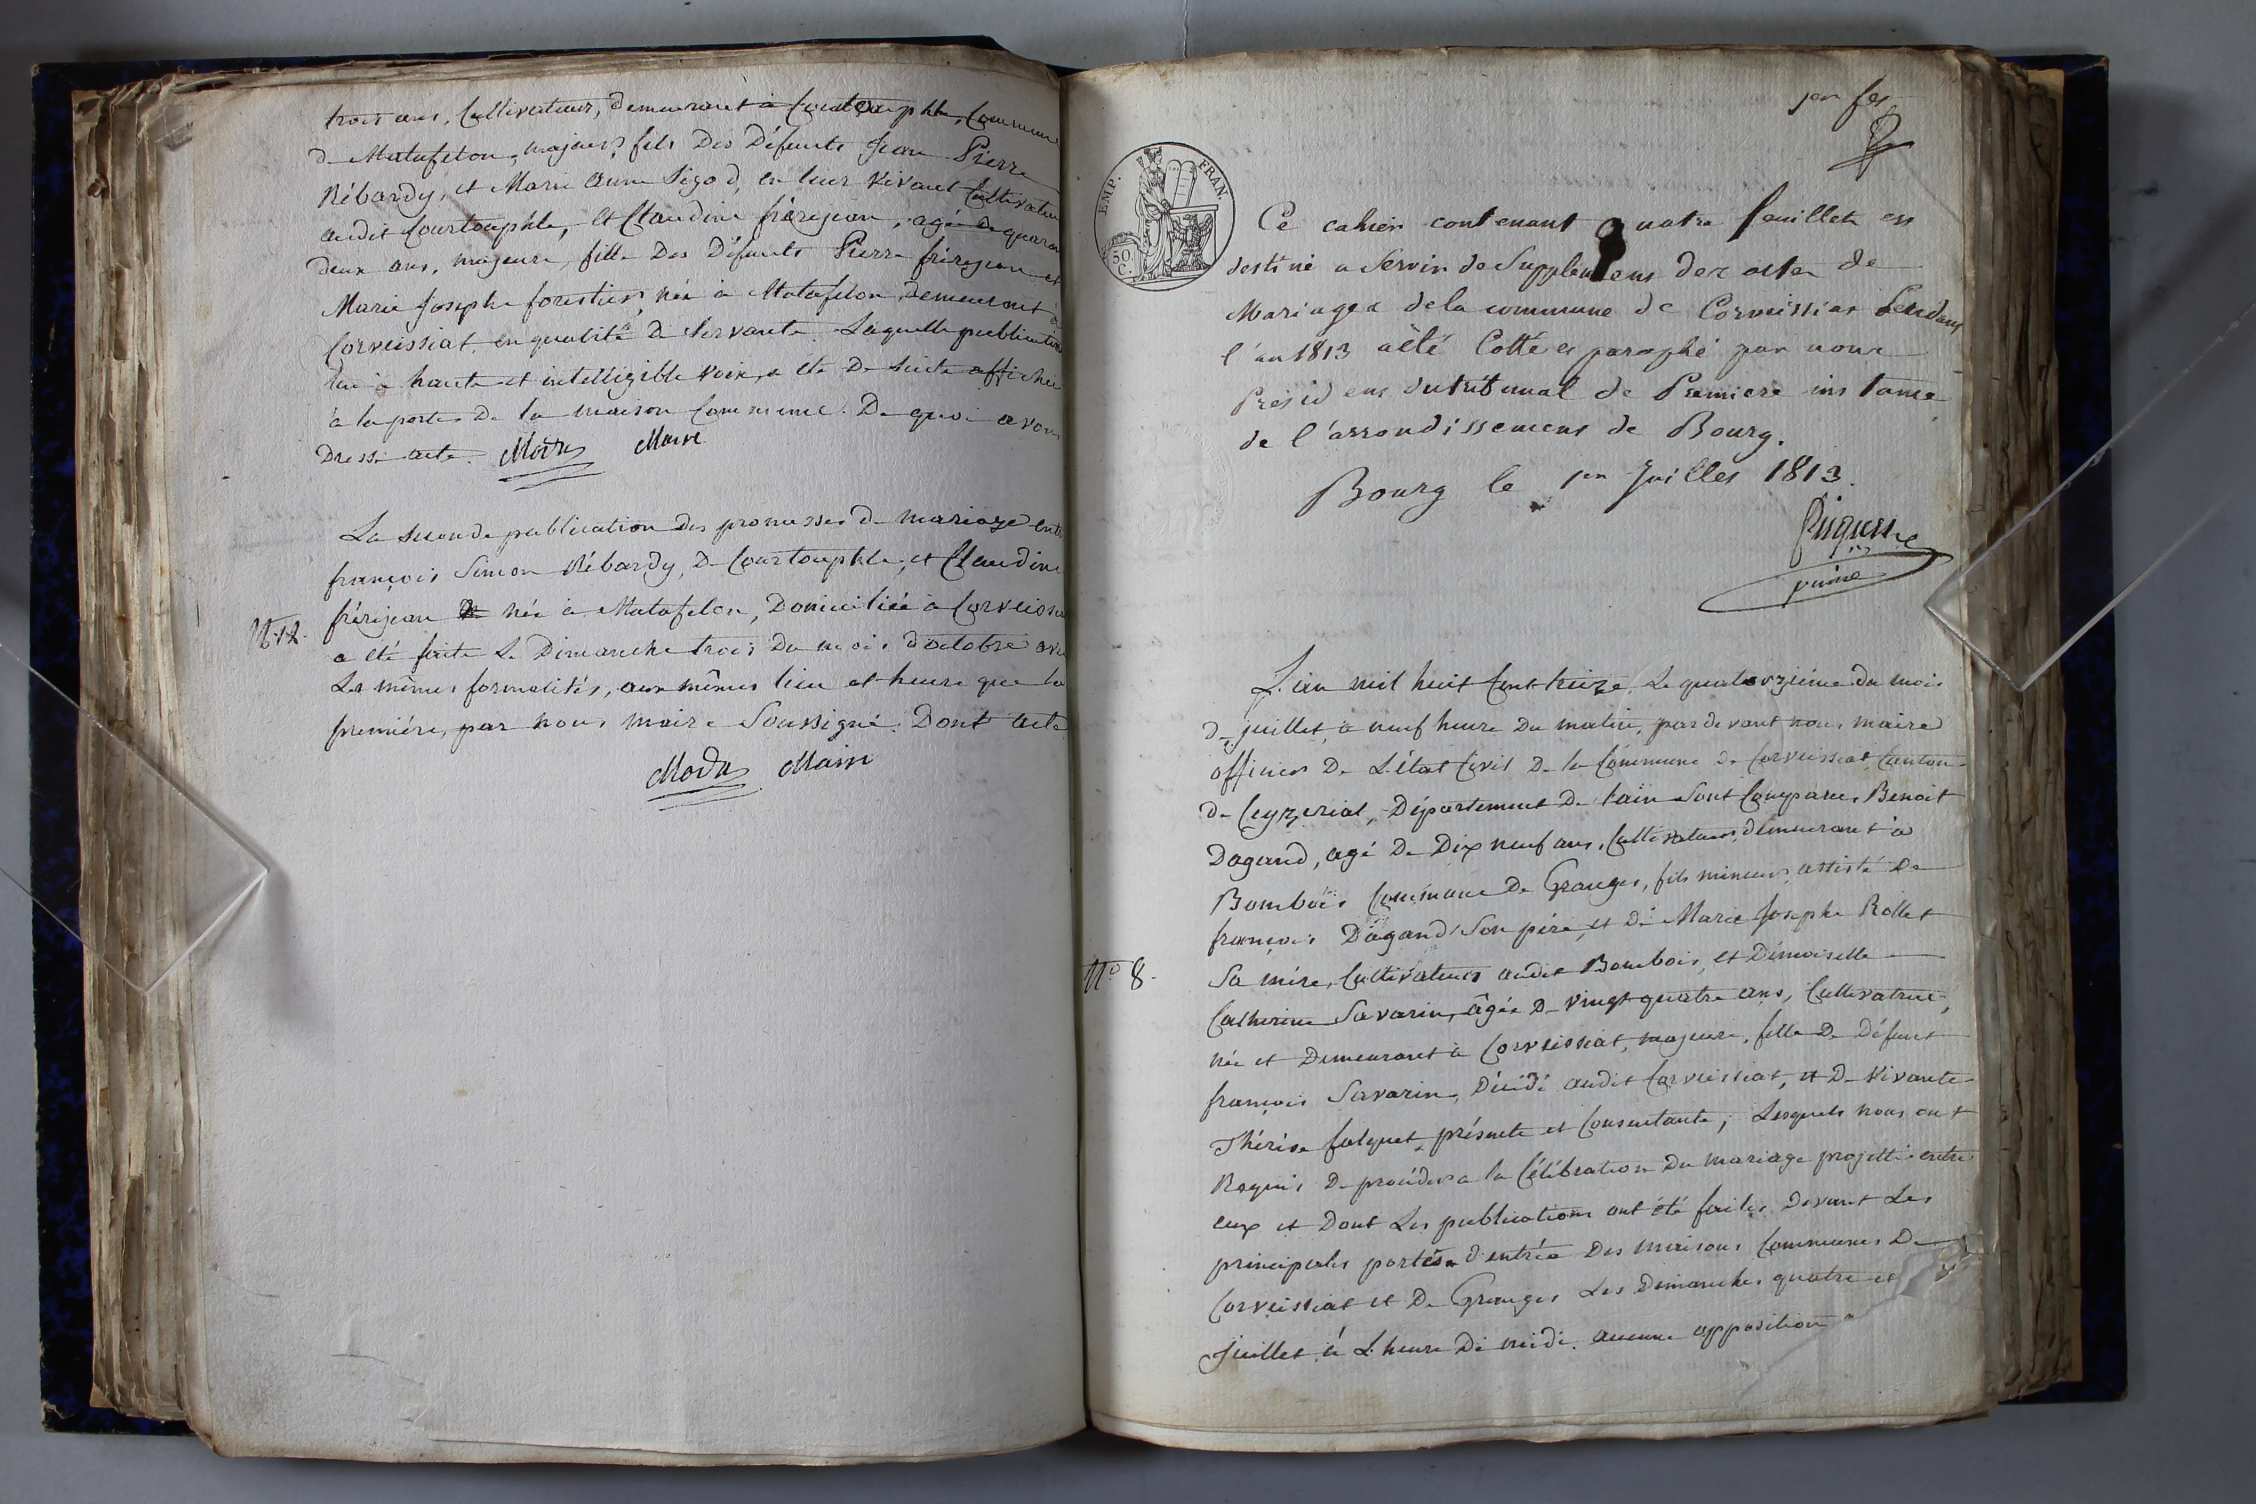 trois ans, Cultivateur, demeurant à Courtouphle, Commune
De Matafelon, majeur, fils Des Défunts Jean Pierre
Rébardy, et Marie anne Sigod, en leur vivant Cultivateurs
audit Courtouphle, et Claudine frérejean, agée De quarante
Deux ans, majeure, fille Des Défunts Pierre frérejean et
Marie Josephe forestier, née à Matafelon, Demeurant à
Corveissiat en qualité De Servante. Laquelle publication
lue à haute et intelligible voix, a été De Suite affichée
à la porte De la maison Commune. De quoi avons
Dressé acte. Maire
La seconde publication des promesses de mariage entre
françois Simon Rébardy, De Courtouphle, et Claudine
frérejean née à Matafelon, Domiciliée à Corveissiat
N.° 12.
a été faite Le Dimanche trois Du mois d'octobre avec
Les mêmes formalités, aux mêmes lieu et heure que la
première, par nous maire Soussigné. Dont acte
Maire
1er fet
EMP. FRAN.
50 C.
Ce cahier contenant quatre feuillets est
destiné a Servir de Supplement der actes de
Mariages de la commune de Corveissiat Pendant
l'an 1813 a été Cotté et paraphé par nous
President du tribunal de Premiere instance
de l'arrondissement de Bourg.
Bourg le 1er Juillet 1813.
L'an mil huit Cent treize, Le quatorzième du mois
De juillet, à neuf heure Du matin, pardevant nous maire
officier De L'état Civil De la Commune De Corveissiat Canton
De Ceyzeriat, Département De l'ain Sont Comparus Benoit
Dagand, agé De Dix neuf ans, Cultivateur, demeurant à
Bombois Commune De Granges, fils mineur, assisté De
françois Dagand Son père, et De Marie Josephe Rollet
N.° 8.
Sa mère, Cultivateurs audit Bombois, et Demoiselle
Catherine Savarin, âgée De vingt quatre ans, Cultivatrice,
née et Demeurant à Corveissiat, majeure, fille De Défunt
françois Savarin, Décédé audit Corveissiat, et De vivante
Thérèse falquet, présente et Consentante; Lesquels nous ont
Requis De procéder a la Célébration Du mariage projetté entre
eux et Dont Les publications ont été faites Devant Les
principales portes d'entrée Des maisons Communes De
Corveissiat et De Granges Les Dimanches quatre et
Juillet à L'heure De midi. aucune opposition